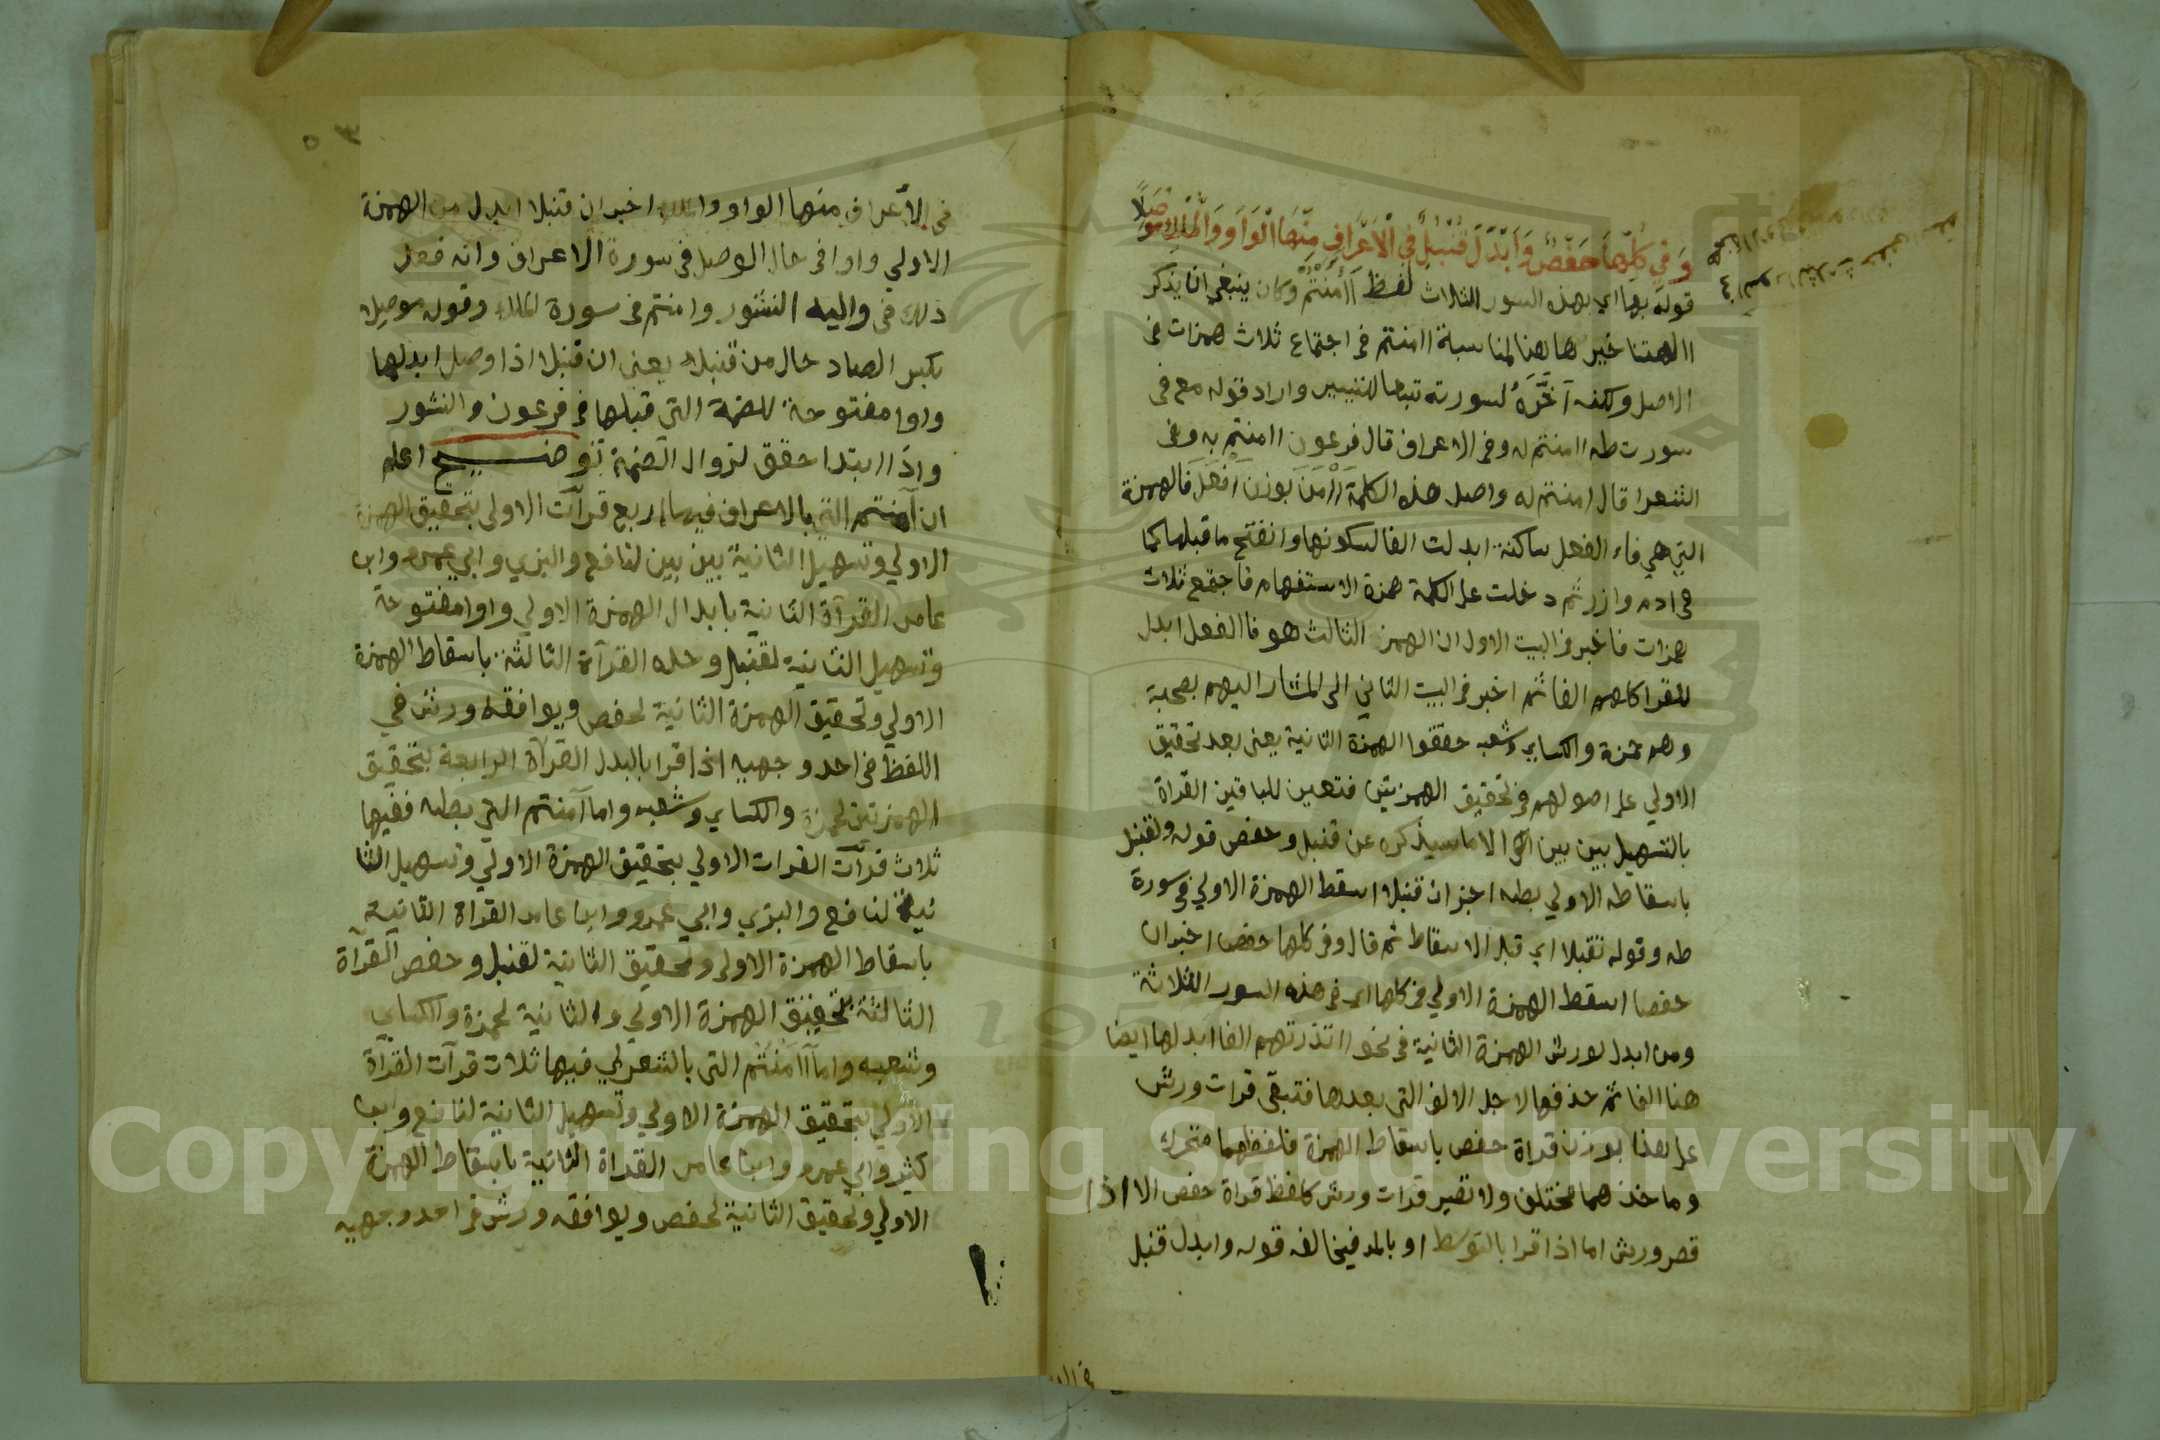 وَفِي كُلِّهَا حَفْصٌ وَأَبْدَلَ قُنْبُلٌ فِي الْأَعْرَافِ مِنْهَا الْوَاوَ وَالْمُلْكِ مُوصِلًا
قوله بها اي بهذه السور الثلاث لفظ أآمنتم وكان ينبغي ان يذكر
االهتنا خير ها هنا لمناسبة اامنتم في اجتماع ثلاث همزات في
الاصل ولكنه أخره لسورته تبعا للتيسير واراد قوله مع في
سورت طه اامنتم له وفي الاعراف قال فرعون اامنتم به وفي
الشعرا قال امنتم له واصل هذه الكلمة أأمن بوزن افعل فالهمزة
التي هي فاء الفعل ساكنة ابدلت الفا لسكونها وانفتح ما قبلها كما
في ادم وازر ثم دخلت على الكلمة همزة الاستفهام فاجتمع ثلاث
همزات فاخبر في البيت الاول ان الهمز الثالث هو فا الفعل ابدل
للقرا كلهم الفا ثم اخبر في البيت الثاني الى المشار اليهم بصحبة
وهم حمزة والكساي وشعبه حققوا الهمزة الثانية يعني بعد تحقيق
الاولي على اصولهم في تحقيق الهمزتين فتعين للباقين القراة
بالتسهيل بين بين الا ما سيذكره عن قنبل وحفص قوله ولقنبل
باسقاطه الاولي بطه اخبر ان قنبلا اسقط الهمزة الاولي في سورة
طه وقوله تقبلا اي قبل الاسقاط ثم قال وفي كلها حفص اخبر ان
حفصا اسقط الهمزة الاولي في كلها اي في هذه السور الثلاثة
ومن ابدل لورش الهمزة الثانية في نحو اانذرتهم الفا ابدلها ايضا
هنا الفا ثم حذفها لاجل الالف التي بعدها فتبقى قرات ورش
على هذا بوزن قراة حفص باسقاط الهمزة فلفظهما متحد
وماخذهما مختلف ولا تصير قرات ورش كلفظ قراة حفص الا اذا
قصر ورش اما اذا قرا بالتوسط او بالمد فيخالفه قوله وابدل قنبل
٥٣
في الأعراف منها الواو والملك اخبر ان قنبلا ابدل من الهمزة
الاولي واوا في حال الوصل في سورة الاعراف وانه فعل
ذلك في واليه النشور وامنتم في سورة الملك وقوله موصلا
بكسر الصاد حال من قنبلا يعني ان قنبلا اذا وصل ابدلها
واوا مفتوحة للضمة التي قبلها في فرعون والنشور
واذا ابتدا حقق لزوال الضمة توضيح اعلم
ان آمنتم التي بالاعراف فيها اربع قرآت الاولى بتحقيق الهمزة
الاولي وتسهيل الثانية بين بين لنافع والبزي وابي عمرو وابن
عامر القرآة الثانية بابدال الهمزة الاولي واوا مفتوحة
وتسهيل الثانية لقنبل وحله القرآة الثالثة باسقاط الهمزة
الاولي وتحقيق الهمزة الثانية لحفص ويوافقه ورش في
اللفظ في احد وجهيه اذا قرا بالبدل القرآة الرابعة بتحقيق
الهمزتين لحمزة والكساي وشعبه واما آمنتم التي بطه ففيها
ثلاث قرآت القرات الاولي بتحقيق الهمزة الاولي وتسهيل الثا
نية لنافع والبزي وابي عمرو وابن عامر القراة الثانية
باسقاط الهمزة الاولى وتحقيق الثانية لقنبل وحفص القرآة
الثالثة بتحقيق الهمزة الاولي والثانية لحمزة والكساي
وشعبه واما آامنتم التي بالشعرا ففيها ثلاث قرآت القرآة
الاولي بتحقيق الهمزة الاولي وتسهيل الثانية لنافع وابن
كثير وابي عمرو وابن عامر القراة الثانية باسقاط الهمزة
الاولي وتحقيق الثانية لحفص ويوافقه ورش في احد وجهيه
Copyright © King Saud University
195